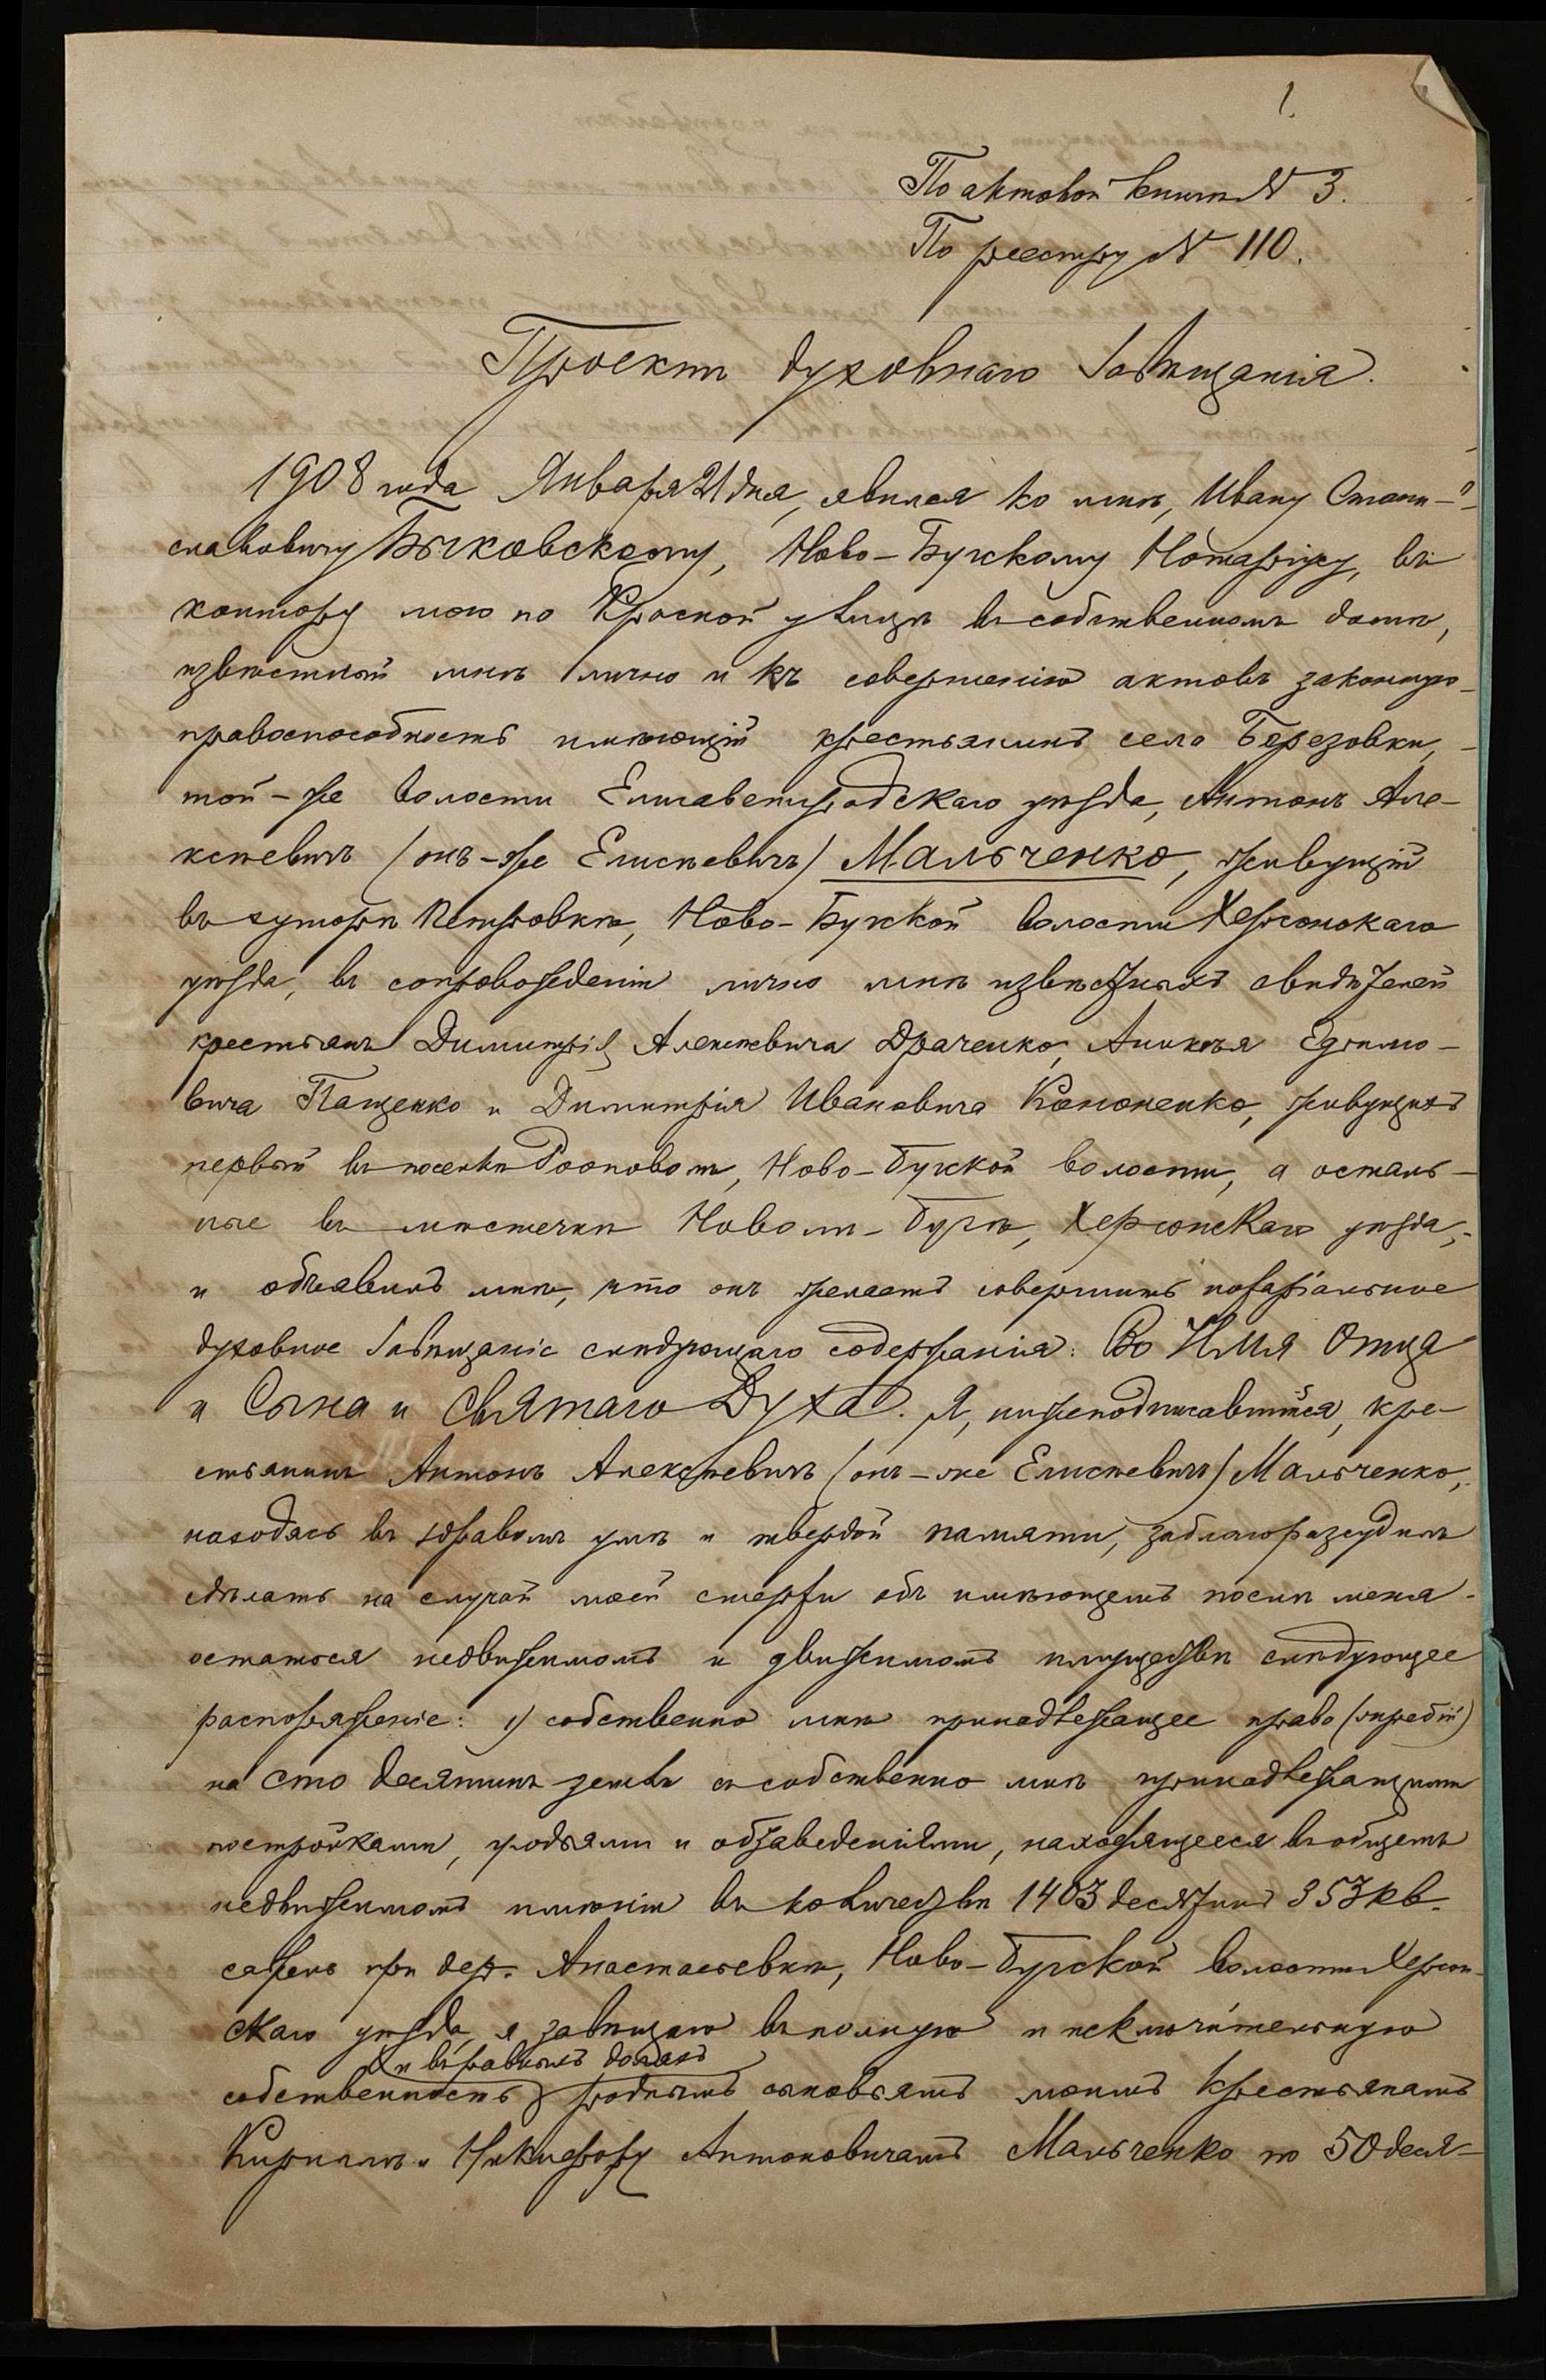 1.
По актовой книгѣ № 3.
По реестру № 110.
Проектъ духовнаго завѣщанія.
1908 года Января 21 дня, явился ко мнѣ, Ивану Стани-
славовичу Бычковскому, Ново-Бугскому Нотаріусу, въ
контору мою по Красной улицѣ въ собственномъ домѣ,
извѣстный мнѣ лично и къ совершенію актовъ законную
правоспособность имѣющій крестьянинъ села Березовки,
той-же волости Елисаветградскаго уѣзда, Антонъ Але-
ксѣевичъ (онъ-же Елисѣевичъ) Мальченко, живущій
въ хуторѣ Петровкѣ, Ново-Бугской волости Херсонскаго
уѣзда, въ сопровожденіи лично мнѣ извѣстныхъ свидѣтелей
крестьянъ Димитрія Алексѣевича Драченко, Аникѣя
вича Пащенко и Димитрія Ивановича Кононенко, живущихъ
первый въ поселкѣ, Ново-Бугской волости, а осталь-
ные въ мѣстечкѣ Новомъ-Бугѣ, Херсонскаго уѣзда,
и объявилъ мнѣ, что онъ желаетъ совершить нотаріальное
духовное завѣщаніе слѣдующаго содержанія: Во Имя Отца
и Сына и Святаго Духа. Я, нижеподписавшійся, кре-
стьянинъ Антонъ Алексѣевичъ (онъ-же Елисѣевичъ) Мальченко,
находясь въ здравомъ умѣ и твердой памяти, заблагоразсудилъ
сдѣлать на случай моей смерти объ имѣющемъ послѣ меня
остаться недвижимомъ и движимомъ имуществѣ слѣдующее
распоряженіе: 1) собственно мнѣ принадлежащее право (жребій)
на сто десятинъ земли съ собственно мнѣ принадлежащими
постройками, угодьями и обзаведеніями, находящееся въ общемъ
недвижимомъ имѣніи въ количествѣ 1403 десятинъ 353 кв.
сажень при дер. Анастасьевкѣ, Ново-Бугской волости Херсон-
скаго уѣзда, я завѣщаю въ полную и исключительную
и въ равныхъ доляхъ
собственность роднымъ сыновьямъ моимъ крестьянамъ
Кириллѣ и Никифору Антоновичамъ Мальченко по 50 деся-